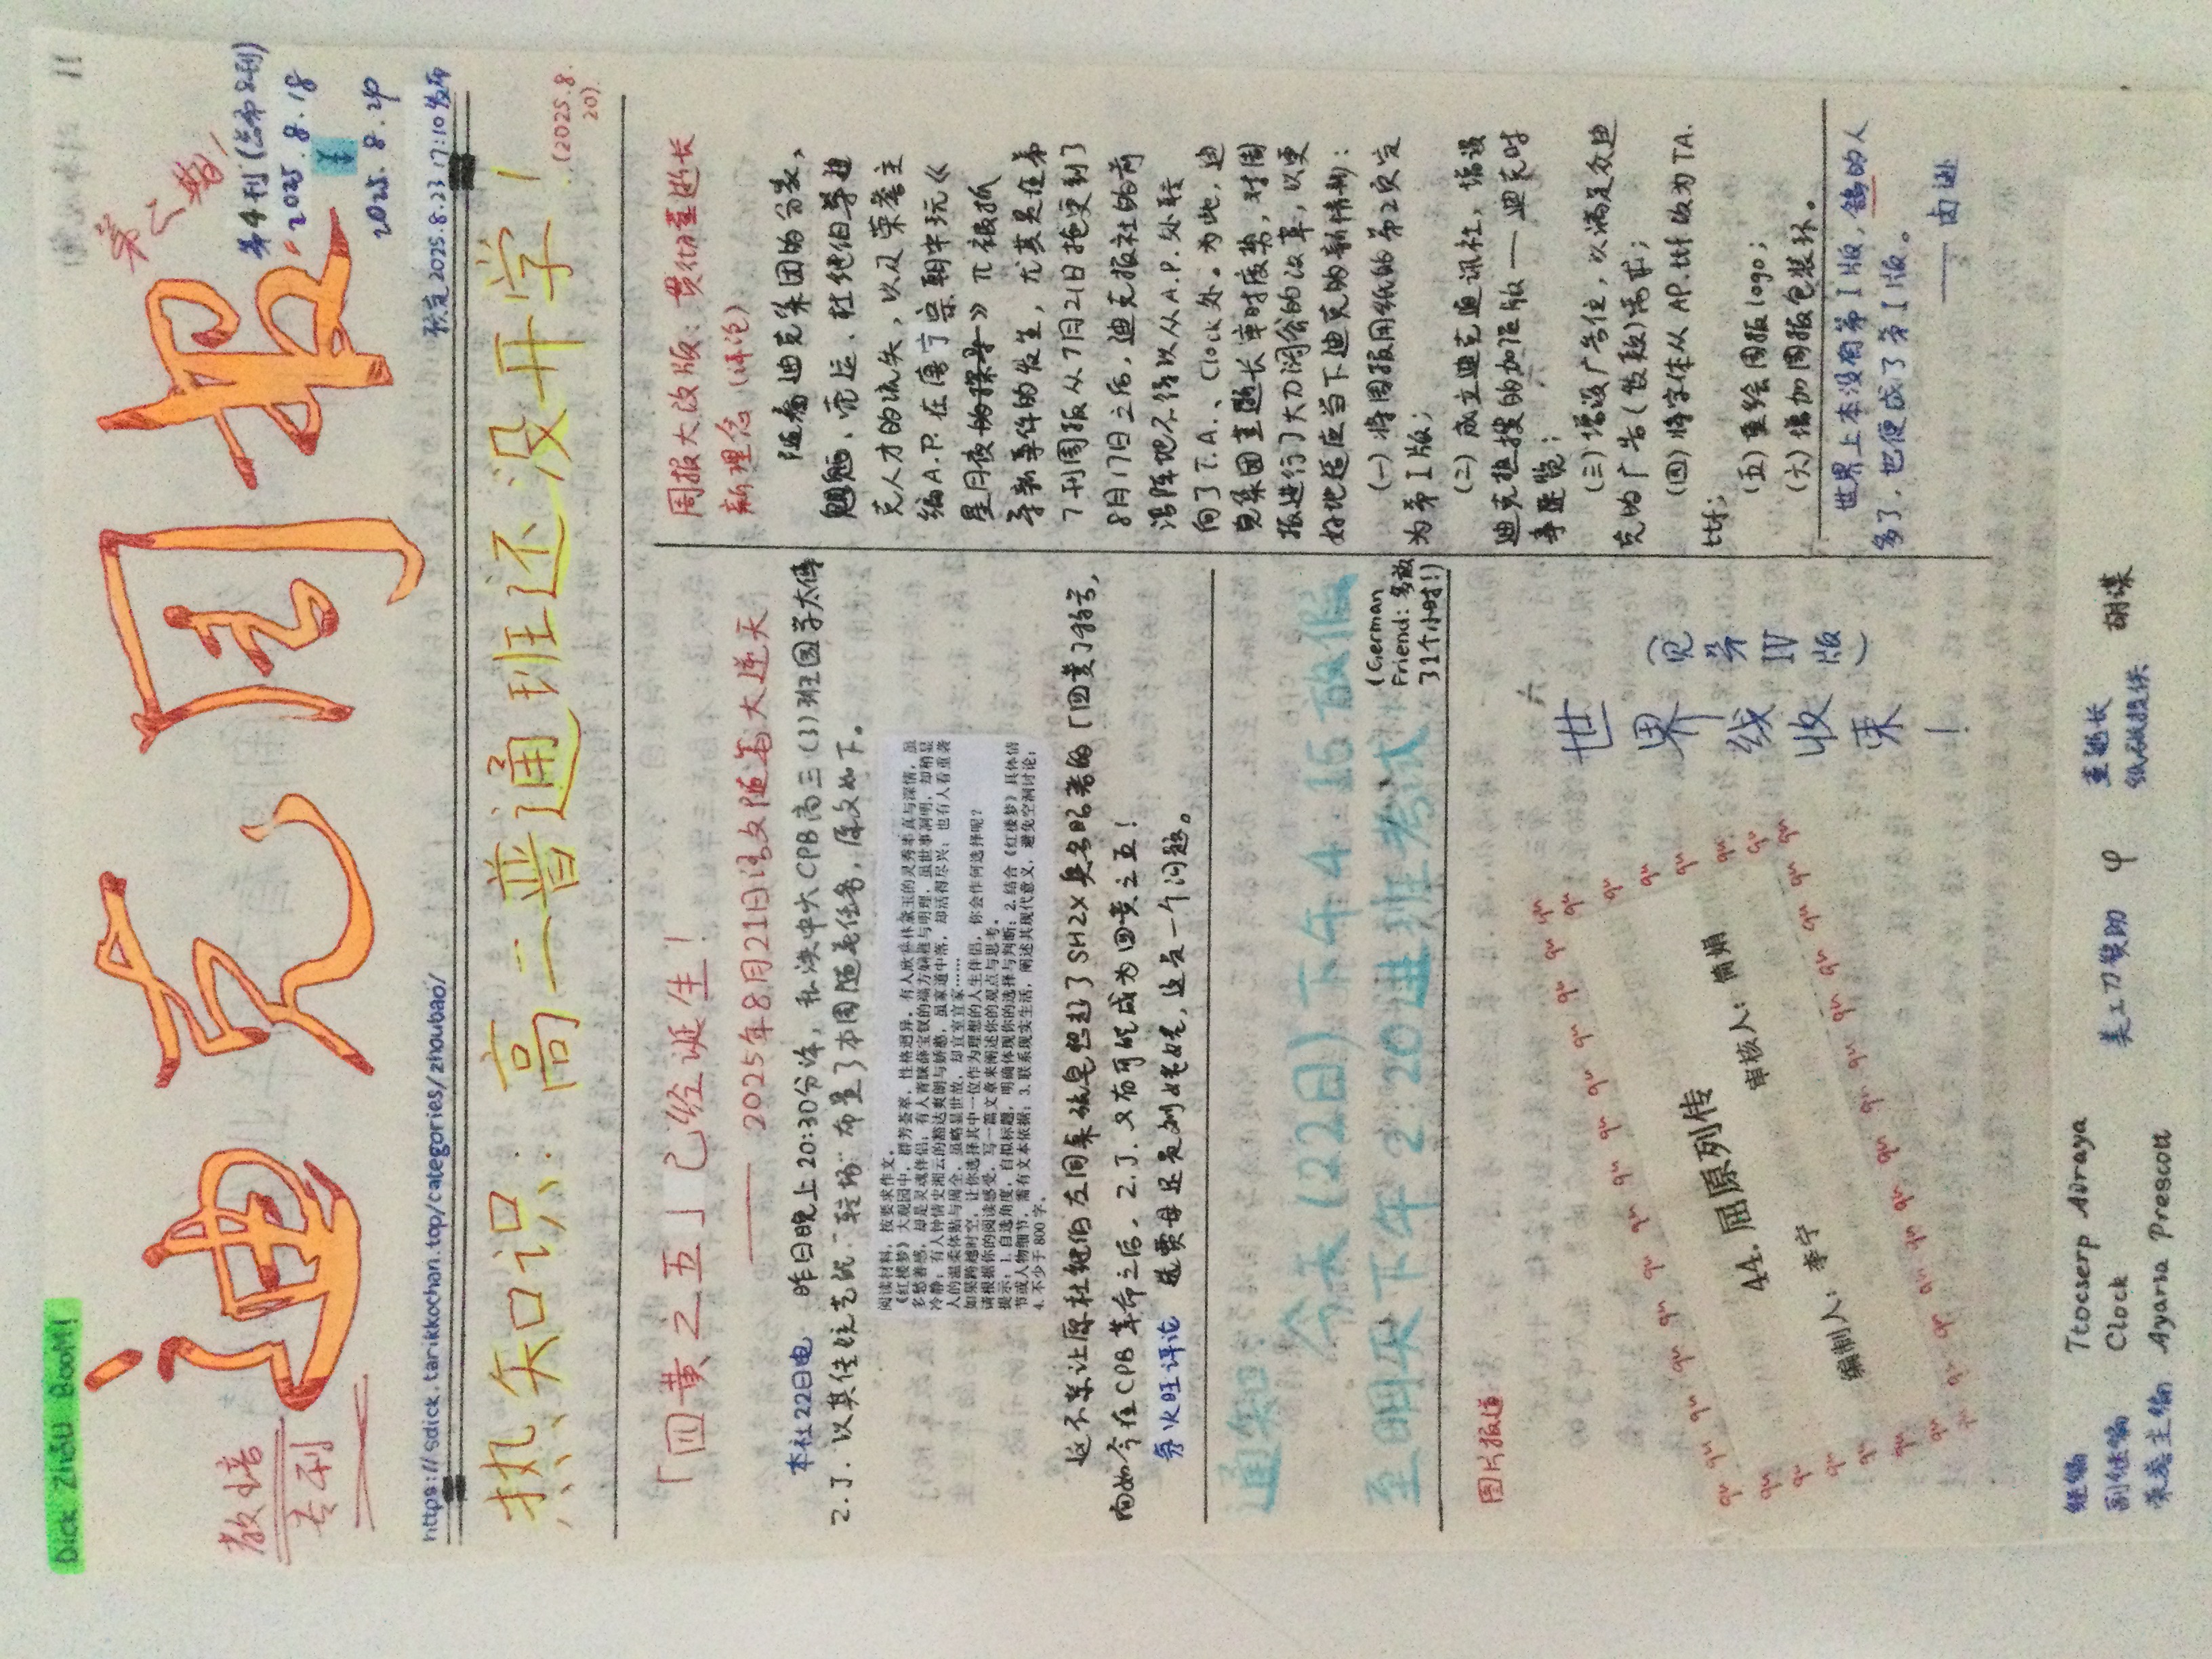 Dick Zhōu BooM!
11
迪克周报
教培
专刊
第二期!
第4刊(总第8刊)
2025.8.18
2025.8.24
https://sdick.tarikkochan.top/categories/zhoubao/
预定2025.8.23 17:10发布
热知识:高二普通班还没开学!
(2025.8.
20)
「四黄之五」已经诞生!
—— 2025年8月21日语文随笔大逆天
本社22日电 昨日晚上20:30分许,私决中大CPB高三(3)班国学太傅
Z.J.以其传统艺能"轻扬"布置了本周随笔任务,原文如下。
阅读材料,按要求作文。
《红楼梦》大观园中,群芳荟萃,性格迥异。有人欣赏林黛玉的灵秀率真与深情,虽
多愁善感,却是灵魂伴侣;有人青睐薛宝钗的端方娴雅与明理,虽世事洞明,却稍显
冷静;有人钟情史湘云的豁达爽朗与娇憨,虽家道中落,却活得尽兴;也有人看重袭
人的温柔体贴与周全,虽略显世故,却宜室宜家……
如果跨越时空,让你选择其中一位作为理想的人生伴侣,你会作何选择呢?
请根据你的阅读感受,写一篇文章来阐述你的观点与思考。
提示:1.自选角度,自拟标题,明确体现你的选择与判断;2.结合《红楼梦》具体情
节或人物细节,需有文本依据;3.联系现实生活,阐述其现代意义,避免空洞讨论;
4.不少于800字。
这不禁让原杜继伯左同桌 想起了SHZX臭名昭著的「四黄」称号,
而如今在CPB革命之后,Z.J.又有可能成为四黄之五!
务火旺评论 选贾母还是刘姥姥,这是一个问题。
通知:
今天(22日)下午4:15放假
至明天下午2:20进班考试
(German
Friend:多放
了1个小时!)
图片报道
qu qu qu qu qu qu qu qu qu qu qu qu qu qu
44.屈原列传
编制人:李宁 审核人:简娟
qu qu qu qu qu qu qu qu qu qu qu qu qu qu
世界线收束!
(见第IV版)
周报大改版:贯彻董逝长
新理念(评论)
随着迪克集团的分裂,
魍魉、壳运、杜继伯等迪
克人才的流失,以及荣誉主
编A.P.在唐宁宗朝中玩《
星月夜的探寻》π被抓
等新事件的发生,尤其是在第
7刊周报从7月21日拖更到了
8月17日之后,迪克报社的前
沿阵地不得以从A.P.处转
向了T.A.、Clock处。为此,迪
克集团董逝长审时度势,对周
报进行了大刀阔斧的改革,以更
好地适应当下迪克的新情形:
(一)将周报用纸的第2页定
为第I版;
(二)成立迪克通讯社,增设
迪克热搜的加强版——迪克时
事速览;
(三)增设广告位,以满足众迪
克的广告(发颠)需求;
(四)将字体从AP.ttf改为TA.
ttf;
(五)重绘周报logo;
(六)增加周报包装环。
世界上本没有第I版,鸽的人
多了,也便成了第I版。
—— 卤迅
继编 Ttocserp Airaya
副继编 Clock
荣誉主编 Ayaria Prescott
美工刀赞助 φ
董逝长
纸张提供 胡谋